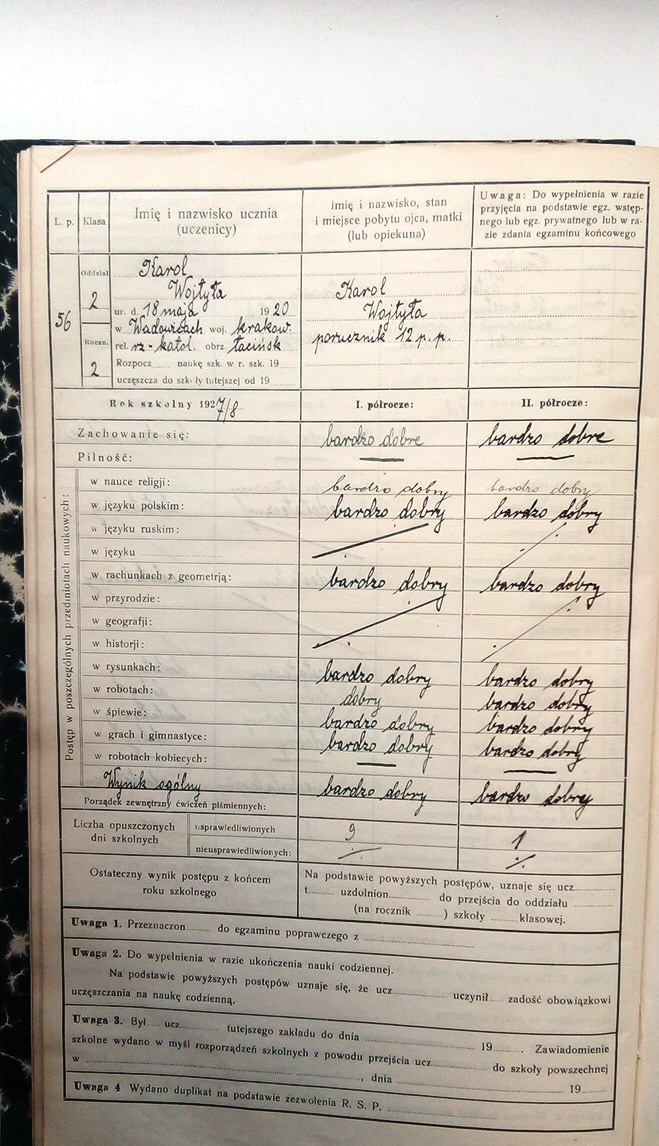 L. p.
Klasa
Imię i nazwisko ucznia
(uczenicy)
Imię i nazwisko, stan
i miejsce pobytu ojca, matki
(lub opiekuna)
Uwaga: Do wypełnienia w razie
przyjęcia na podstawie egz. wstęp-
nego lub egz. prywatnego lub w ra-
zie zdania egzaminu końcowego
56
Oddział
2
Roczn.
2
Karol
Wojtyła
ur. d. 18 maja 1920
w Wadowicach woj. krakow.
rel. rz-katol. obrz łacińsk
Rozpocz...... naukę szk. w r. szk. 19......
uczęszcza do szkoły tutejszej od 19......
Karol
Wojtyła
porucznik 12 p.p.
Rok szkolny 1927/8 I. półrocze: II. półrocze:
Zachowanie się: bardzo dobre bardzo dobre
Pilność: — —
Postęp w poszczególnych przedmiotach naukowych:
w nauce religji: bardzo dobry bardzo dobry
w języku polskim: bardzo dobry bardzo dobry
w języku ruskim:
w języku ......
w rachunkach z geometrją: bardzo dobry bardzo dobry
w przyrodzie:
w geografji:
w historji:
w rysunkach: bardzo dobry bardzo dobry
w robotach: dobry bardzo dobry
w śpiewie: bardzo dobry bardzo dobry
w grach i gimnastyce: bardzo dobry bardzo dobry
w robotach kobiecych: — —
Wynik ogólny bardzo dobry bardzo dobry
Porządek zewnętrzny ćwiczeń piśmiennych:
Liczba opuszczonych
dni szkolnych
usprawiedliwionych 9 1
nieusprawiedliwionych: ./. ./.
Ostateczny wynik postępu z końcem
roku szkolnego
Na podstawie powyższych postępów, uznaje się ucz......
t...... uzdolnion...... do przejścia do oddziału ......
(na rocznik ......) szkoły ...... klasowej.
Uwaga 1. Przeznaczon...... do egzaminu poprawczego z ......
Uwaga 2. Do wypełnienia w razie ukończenia nauki codziennej.
Na podstawie powyższych postępów uznaje się, że ucz...... uczynił...... zadość obowiązkowi
uczęszczania na naukę codzienną.
Uwaga 3. Był...... ucz...... tutejszego zakładu do dnia ...... 19...... Zawiadomienie
szkolne wydano w myśl rozporządzeń szkolnych z powodu przejścia ucz...... do szkoły powszechnej
w ......, dnia ...... 19......
Uwaga 4 Wydano duplikat na podstawie zezwolenia R. S. P. ......